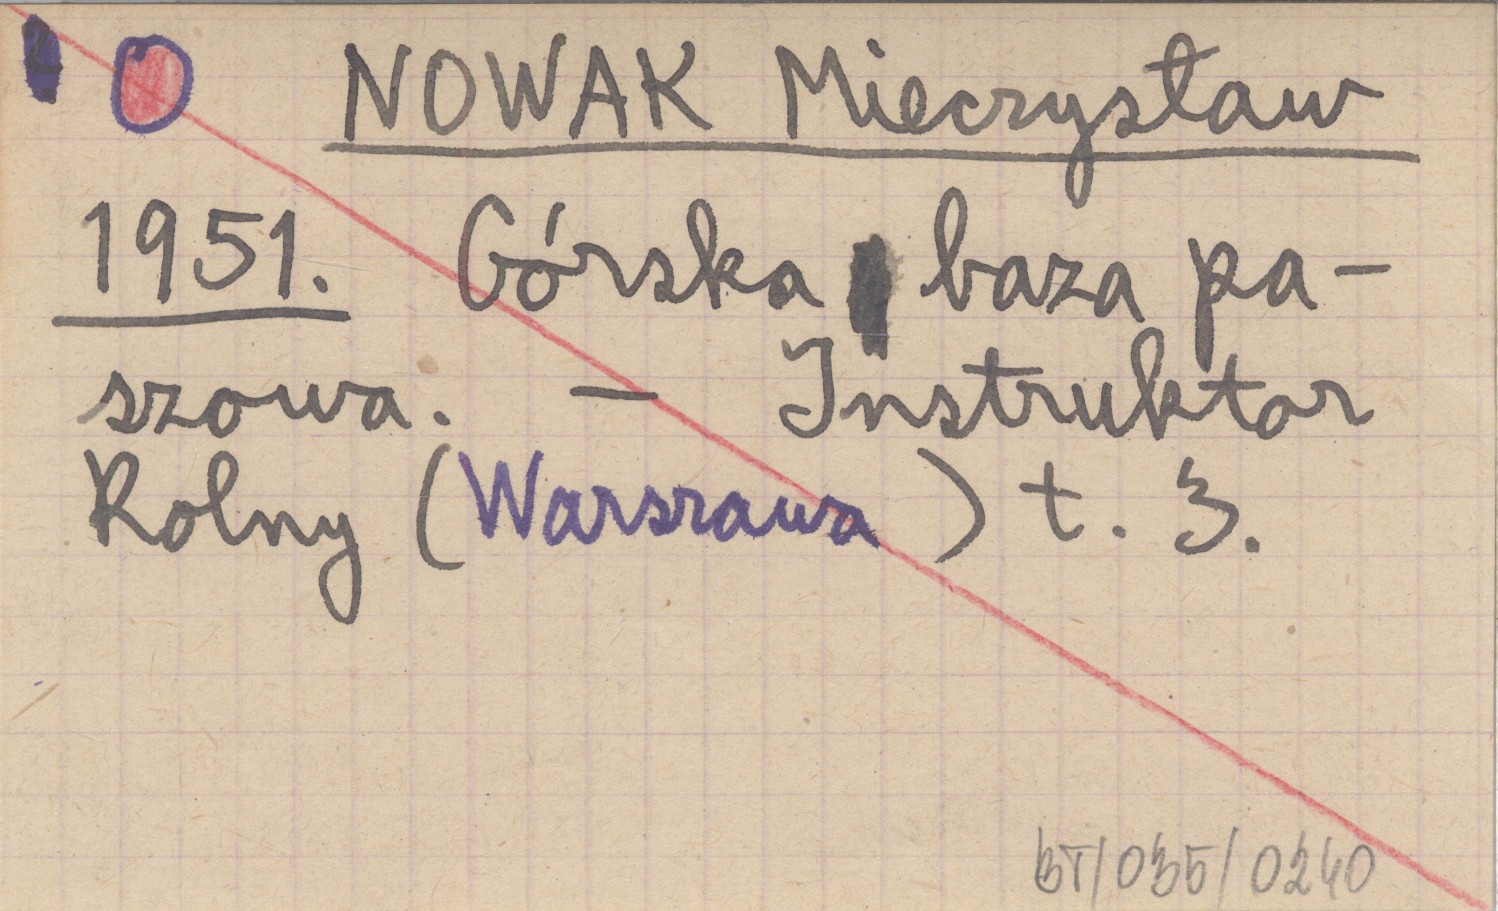 NOWAK Mieczysław
1951. Górska baza pa-
szowa. — Instruktor
Rolny (Warszawa) t. 3.
BT/035/0240